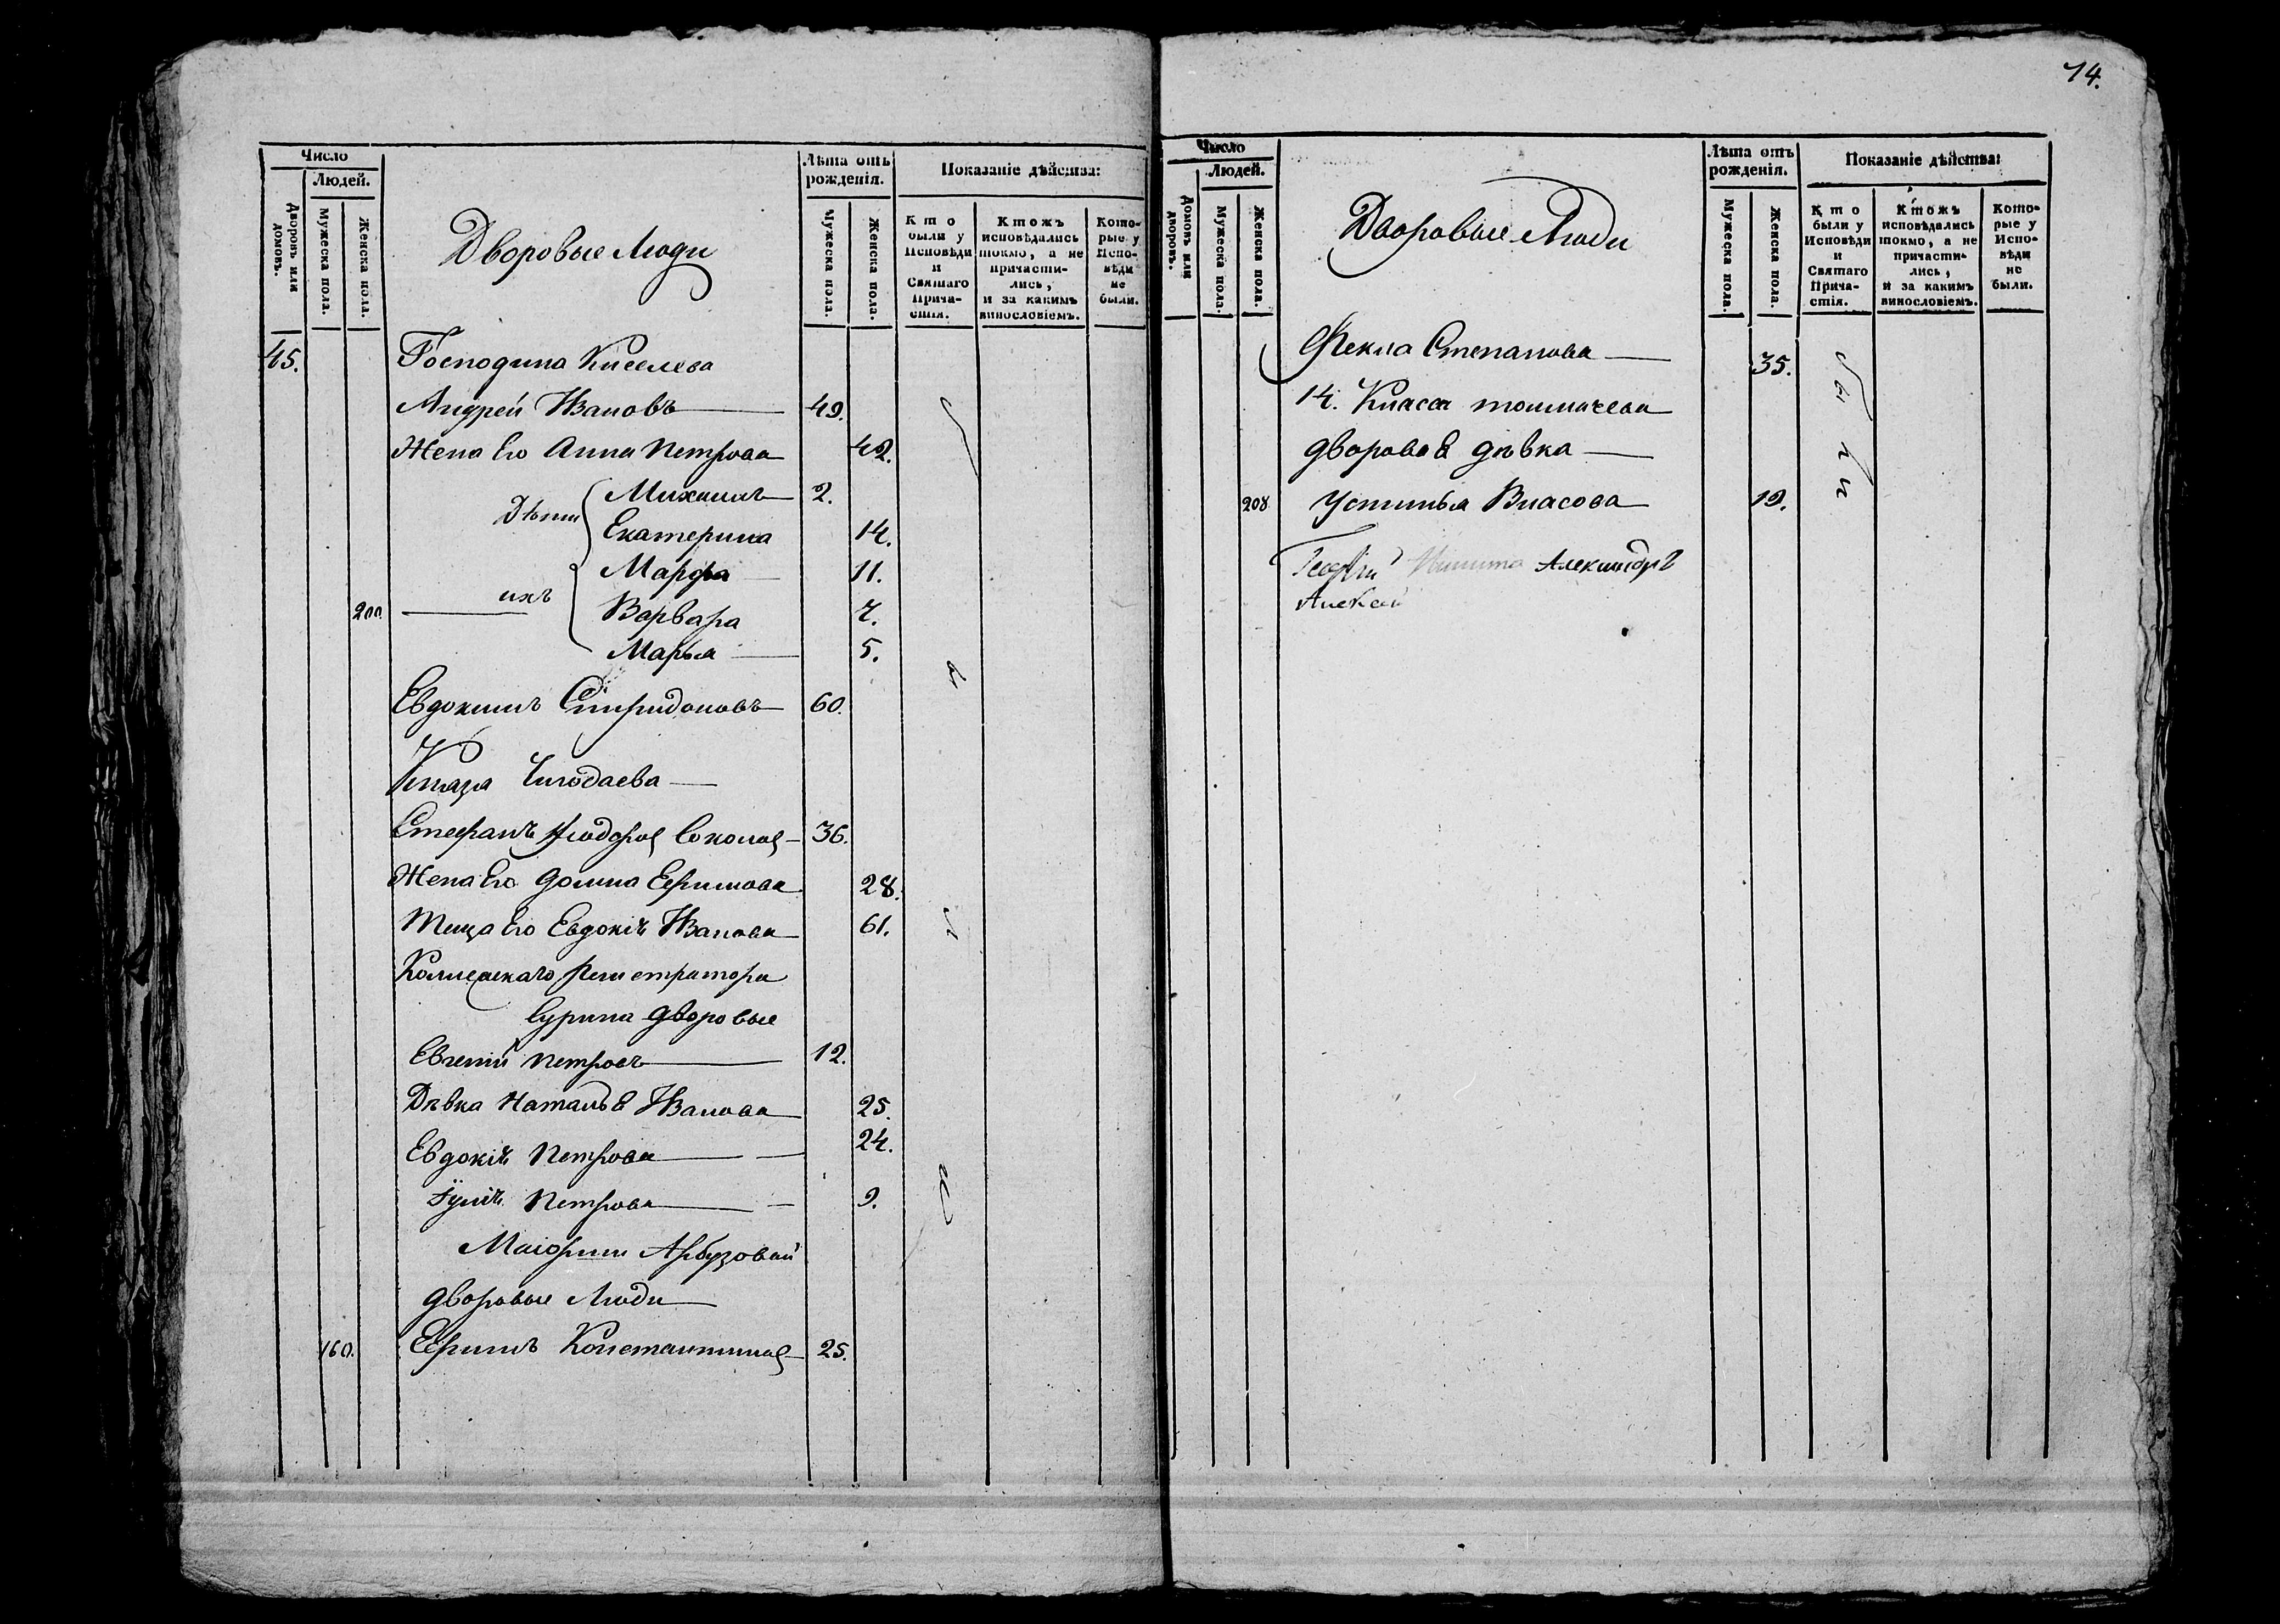 14.
Число
Людей.
Дворовъ или домовъ.
Мужеска пола.
Женска пола.
Дворовые Люди
Лѣта отъ рожденія.
Мужеска пола.
Женска пола.
Показаніе дѣйства:
Кто были у Исповѣди и Святаго Прича-стія.
Ктожъ исповѣдались токмо, а не причасти-лись, и за какимъ винословіемъ.
Кото-рые у Испо-вѣди не были.
45. Господина Киселева
Андрей Ивановъ 49.
Жена Его Анна Петрова 42.
Дѣти Михаилъ 2.
Екатерина 14.
Марфа 11.
200. ихъ Варвара 7.
Марья 5.
Евдокимъ Спиридоновъ 60.
Князя Чегодаева
Стефанъ Соколов 36.
Жена Его Домна Ефимова 28.
Теща Его Евдокія Иванова 61.
Коллежскаго Регистратора
Сурина дворовые
Евгеній Петровъ 12.
Дѣвка Наталья Иванова 25.
Евдокія Петрова 24.
Іулія Петрова 9.
Маіорши Арбузовой
дворовые Люди
160. Ефимъ Константинов 25.
Число
Людей.
Домовъ или дворовъ.
Мужеска пола.
Женска пола.
Дворовые Люди
Лѣта отъ рожденія.
Мужеска пола.
Женска пола.
Показаніе дѣйства:
Кто были у Исповѣди и Святаго Прича-стія.
Ктожъ исповѣдались токмо, а не причасти-лись, и за какимъ винословіемъ.
Кото-рые у Испо-вѣди не были.
Фекла Степанова 35.
14. Класса толмачева
дворовая дѣвка
208 Устинья Власова 19.
были
Георгій Никита Александръ
Алексей